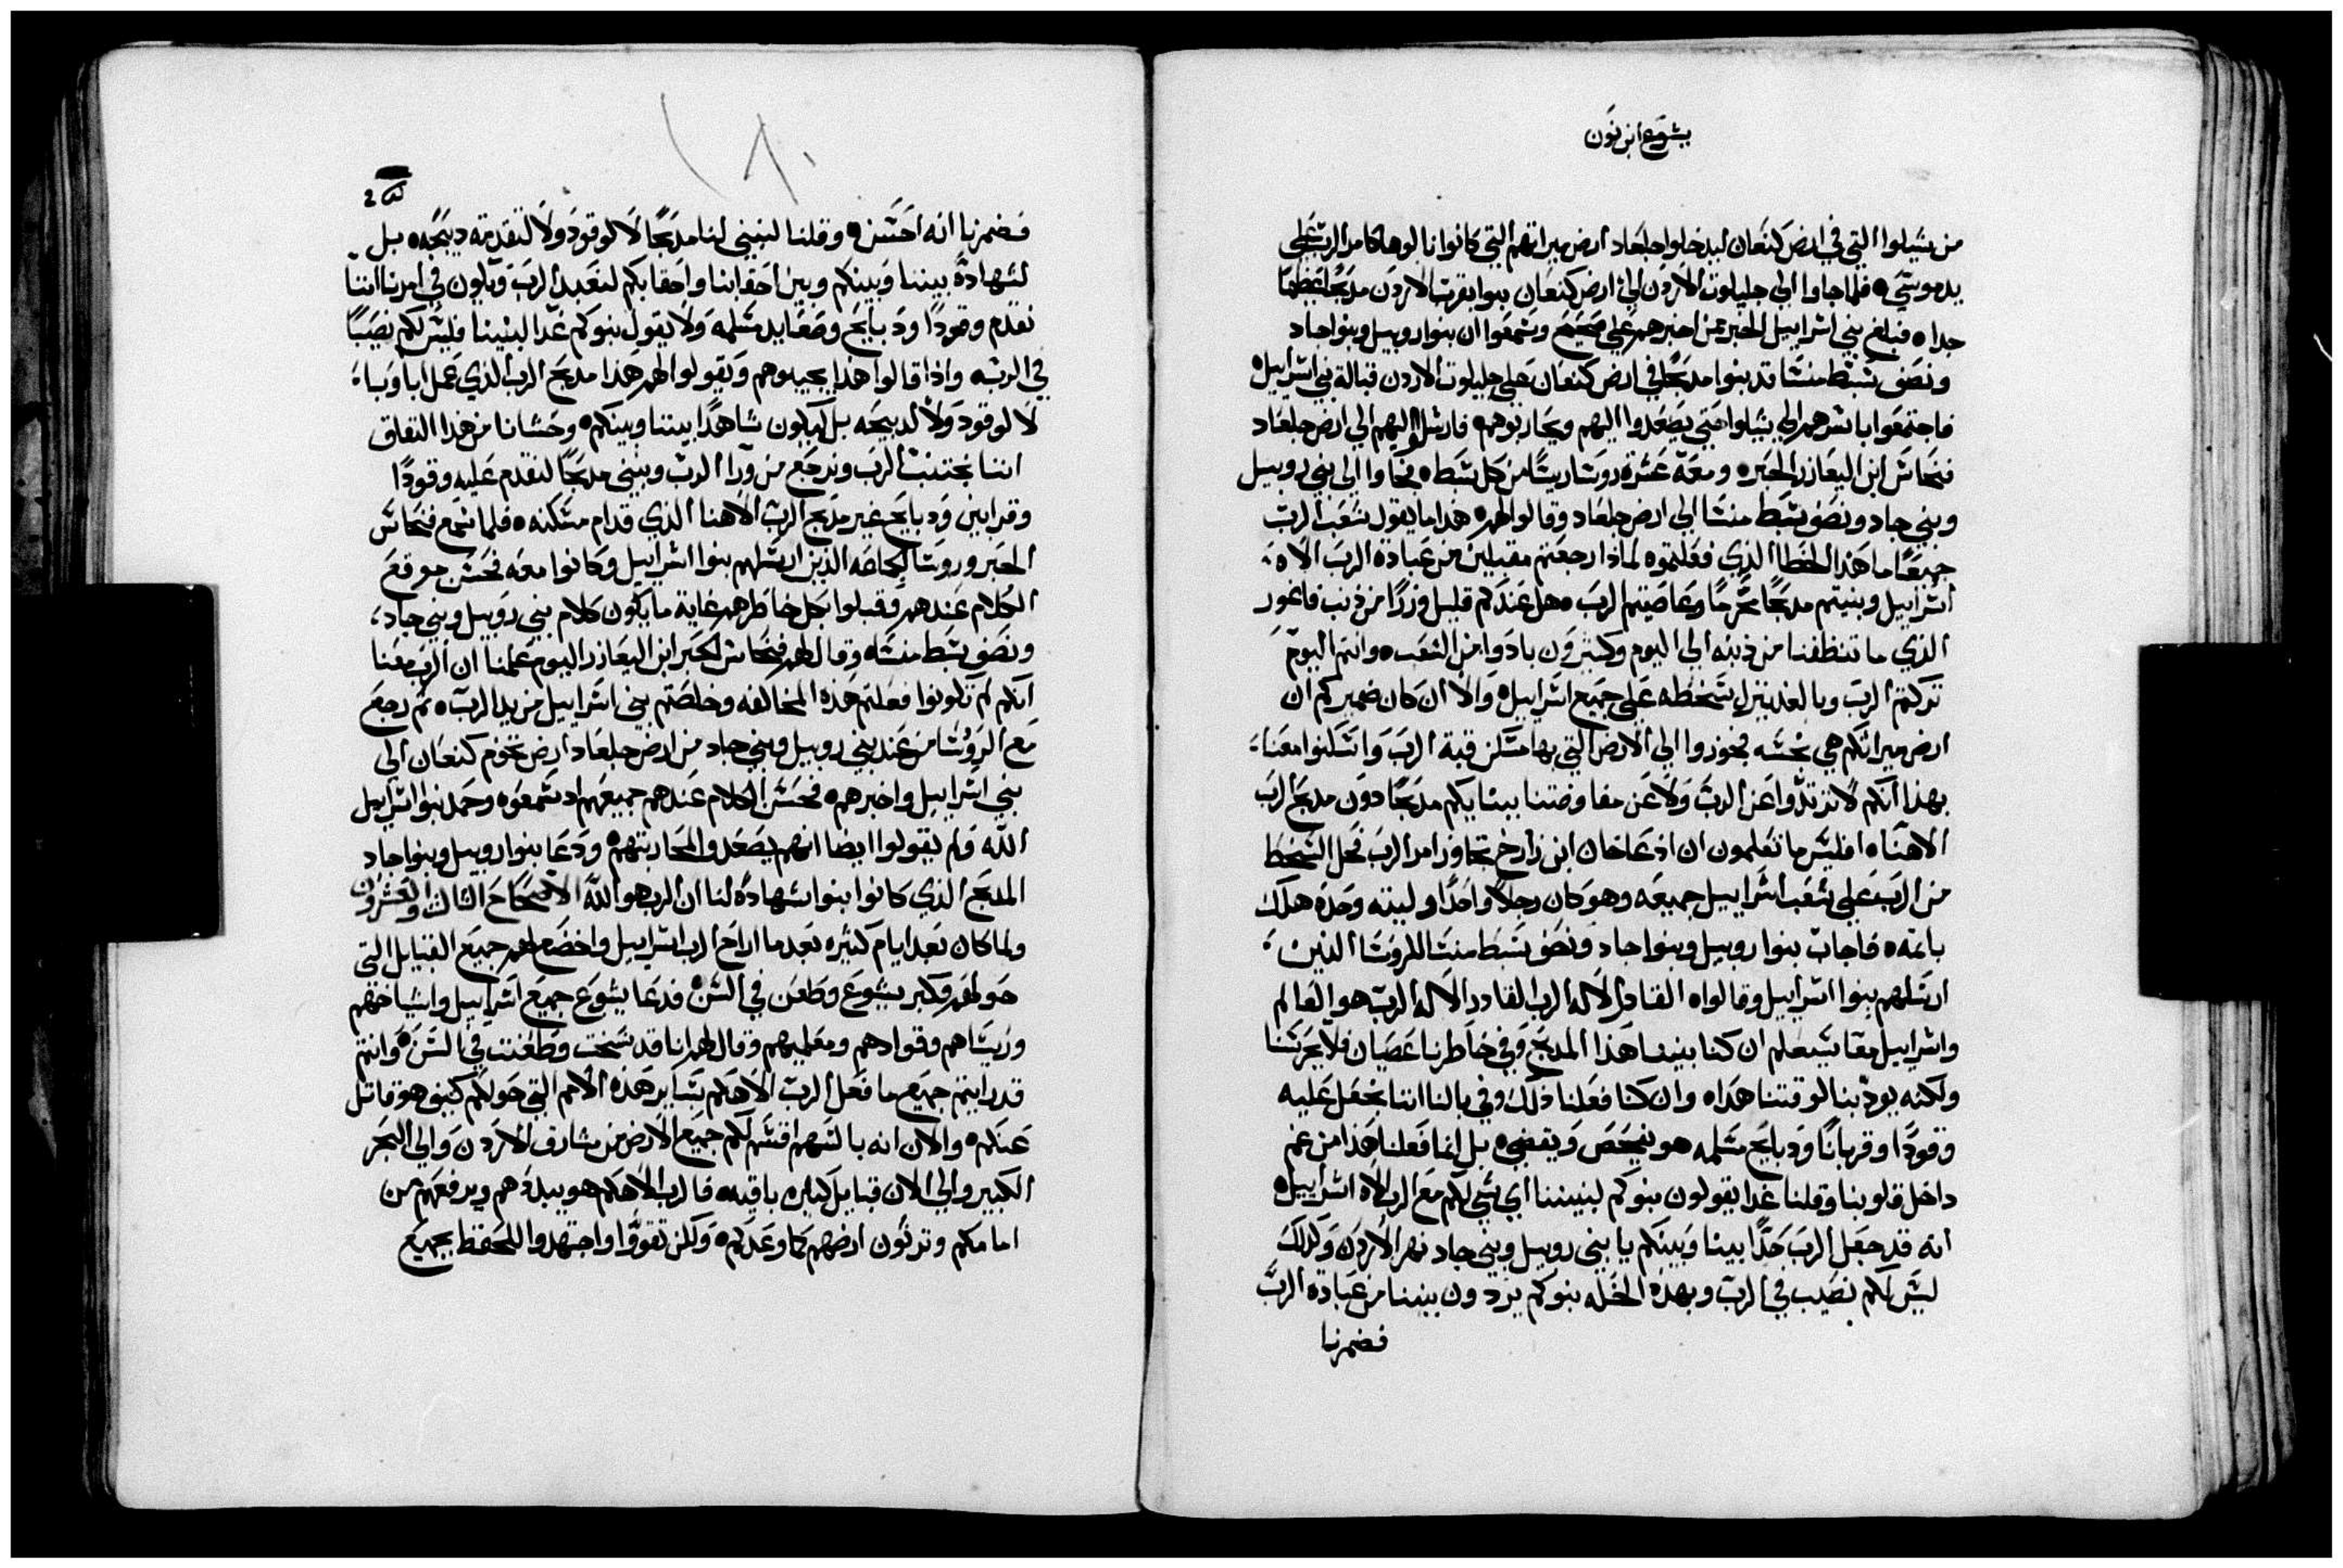 يشوع ابن نون
من شيلوا التي في ارض كنعان ليدخلوا جلعاد ارض ميراتهم التي كانوا نالوها كامر الرب علي
يد موسي ه فلما جاوا الي جليلوت الاردن الي ارض كنعان بنوا بقرب الاردن مدبحًا عظيمًا
جدا ه فبلغ بني اسراييل الخبر ممن اخبرهم علي صحيح وسمعوا ان بنوا روبيل وبنوا جاد
ونصف سبط منشا قد بنوا مدبحًا في ارض كنعان علي جليلوت الاردن قبالة بني اسراييل ه
فاجتمعوا باسرهم الي شيلوا حتي يصعدوا اليهم ويحاربوهم ه فارسلوا اليهم الي ارض جلعاد
فنحاس ابن اليعازر الحبر ه ومعه عشرة روسا ريسًا من كل سبط ه فجاوا الي بني روبيل
وبني جاد ونصف سبط منشا الي ارض جلعاد وقالوا لهم ه هدا ما يقول شعب الرب
جميعًا ما هدا الخطا الذي فعلتموه لماذا رجعتم مقبلين من عبادة الرب الاه
اسراييل وبنيتم مدبحًا محرمًا وعاصيتم الرب ه هل عندكم قليل وزرًا من ذنب فاغور
الذي ما تنظفنا من ذنبه الي اليوم وكثيرون بادوا من الشعب ه وانتم اليوم
تركتم الرب وبالغد ينزل سخطه علي جميع اسراييل ه والا ان كان ضميركم ان
ارض ميراتكم هي نجسه فجوزوا الي الارض التي بها مسكن قبة الرب واسكنوا معنا
بهذا انكم لا ترتدّوا عن الرب ولا عن مفاوضتنا ببنايكم مدبحًا دون مدبح الرب
الاهنا ه افليس ما تعلمون ان اذ عاخان ابن زارح تجاوز امر الرب فحل السخط
من الرب علي شعب اسراييل جميعه وهو كان رجلاً واحدًا وليته وحده هلك
باتمه ه فاجاب بنوا روبيل وبنوا جاد ونصف سبط منشا للروسا الذين
ارسلهم بنوا اسراييل وقالوا ه القادر الاله الرب القادر الاله الرب هو العالم
واسراييل معًا سيعلم ان كنا بنينا هذا المدبح وفي خاطرنا عصيان فلا يحرسنا
ولكنه يودبنا لوقتنا هدا ه وان كنا فعلنا ذلك وفي بالنا اننا نجعل عليه
وقودًا وقربانًا ودبايح مسلمه هو يفحص ويقضي ه بل انما فعلنا هذا من غم
داخل قلوبنا وقلنا غدا يقولون بنوكم لبنيننا اي شي لكم مع الرب الاه اسراييل ه
انه قد جعل الرب حدًّا بيننا وبينكم يا بني روبيل وبني جاد نهر الاردن ولذلك
ليس لكم نصيب في الرب وبهذه الخله بنوكم يردون بنيننا من عبادة الرب
فضمرنا
١٨٠
فضمرنا انه احسن ه وقلنا لنبني لنا مدبحًا لا لوقود ولا لتقدمة دبيحه ه بل
لشهادة بيننا وبينكم وبين احقابنا واحقابكم لنعبد الرب ويكون في امرنا اننا
نقدم وقودًا ودبايح وصعايد سلمه ولا يقول بنوكم غدًا لبنينا فليس لكم نصيبًا
في الرب ه واذا قالوا هذا يجيبوهم ويقولوا لهم هذا مدبح الرب الذي عمل اباونا
لا لوقود ولا لدبيحه بل ليكون شاهدًا بيننا وبينكم ه وحشانا من هذا النفاق
اننا نجتنب الرب ونرجع من ورا الرب ونبني مدبحًا لنقدم عليه وقودًا
وقرابين ودبايح غير مدبح الرب الاهنا الذي قدام مسكنه ه فلما سمع فنحاس
الحبر وروسا الجماعه الذين ارسلهم بنوا اسراييل وكانوا معه فحسن موقع
الكلام عندهم وقبلوا بكل خاطرهم غاية ما يكون كلام بني روبيل وبني جاد
ونصف سبط منشا ه وقال لهم فنحاس الحبر ابن اليعازر اليوم علمنا ان الرب معنا
انكم لم تكونوا فعلتم هذه المخالفه وخلصتم بني اسراييل من يد الرب ه تم رجع
مع الروسا من عند بني روبيل وبني جاد من ارض جلعاد ارض تخوم كنعان الي
بني اسراييل واخبرهم ه فحسن الكلام عندهم جميعهم اد سمعوه وحمد بنوا اسراييل
الله ولم يقولوا ايضا انهم يصعدوا لمحاربتهم ه ودعا بنوا روبيل وبنوا جاد
المدبح الذي كانوا بنوا شهادة لنا ان الرب هو الله الاصحاح التالت والعشرون
ولما كان بعد ايام كثيره بعد ما اراح الرب اسراييل واخضع لهم جميع القبايل التي
حولهم فكبر يشوع وطعن في السن ه فدعا يشوع جميع اسراييل واشياخهم
وريساهم وقوادهم ومعلميهم وقال لهم انا قد شخت وطعنت في السن ه وانتم
قد رايتم جميع ما فعل الرب الاهكم بساير هذه الامم التي حولكم كيف هو قاتل
عنكم ه والان انه بالسهم اقسم لكم جميع الارض من مشارف الاردن والي البحر
الكبير والي الان قبايل كثيره باقيه ه فالرب الاهكم هو يبلدهم ويرفعهم من
امامكم وترتون ارضهم كما وعدكم ه ولكن تقوّوا واجتهدوا للحفظ بجميع